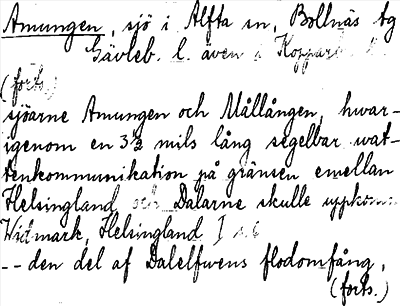 Amungen, sjö i Alfta sn, Bollnäs tg
Gävleb. l. även i Koppar
(forts.)
sjöarne Amungen och Mållången, hvar-
igenom en 3½ mils lång segelbar wat-
tenkommunikation på gränsen emellan
Helsingland och Dalarne skulle uppkom
Widmark, Helsingland I s. 6
-- den del af Dalelfwens flodomfång,
(forts.)